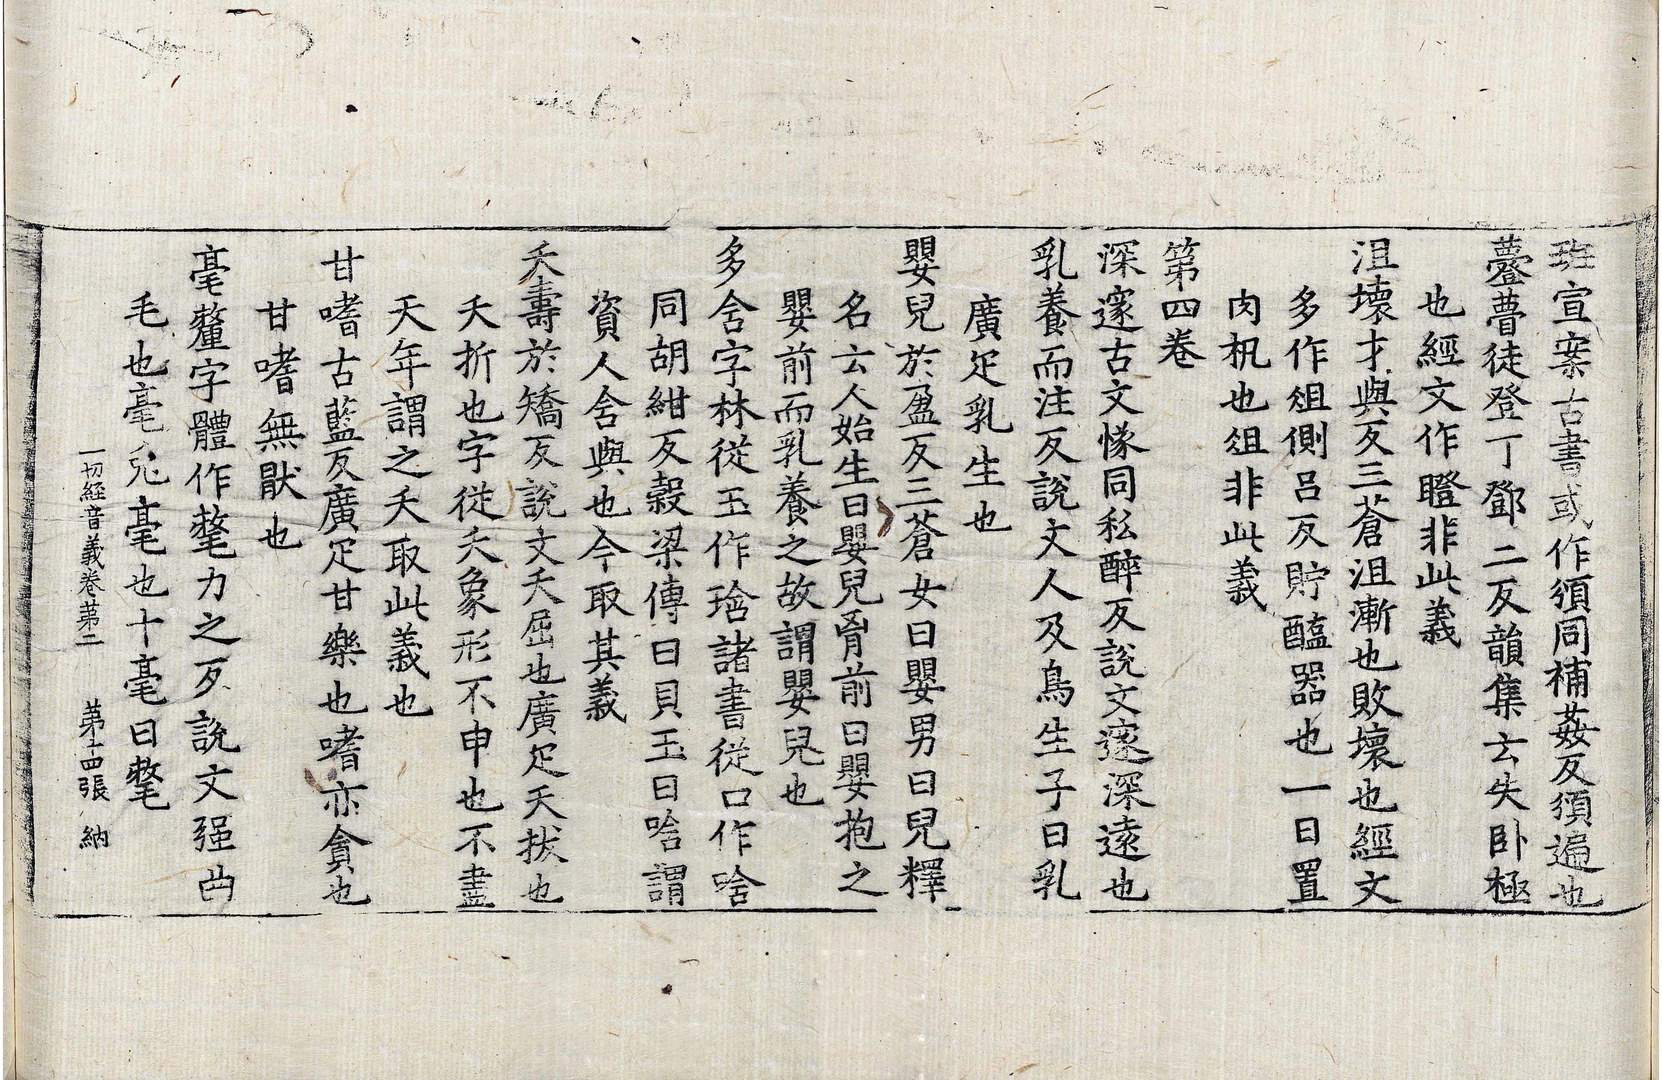 班宣案古書或作頒同補姦反頒遍也
蕿瞢徒登丁鄧二反韻集云失卧極
也經文作瞪非此義
沮壞才與反三蒼沮漸也敗壞也經文
多作俎側呂反貯醢器也一曰置
肉机也俎非此義
第四卷
深邃古文㥞同私醉反說文邃深遠也
乳養而注反說文人及鳥生子曰乳
廣疋乳生也
嬰兒於盈反三蒼女曰嬰男曰兒釋
名云人始生曰嬰兒胷前曰嬰抱之
嬰前而乳養之故謂嬰兒也
多含字林從玉作琀諸書從口作唅
同胡紺反穀梁傳曰貝玉曰唅謂
資人含與也今取其義
夭壽於矯反說文夭屈也廣疋夭拔也
夭折也字從夭象形不申也不盡
天年謂之夭取此義也
甘嗜古藍反廣疋甘樂也嗜亦貪也
甘嗜無猒也
毫釐字體作氂力之反說文强曲
毛也毫兎毫也十毫曰氂
一切経音義卷苐二 苐十四張 納